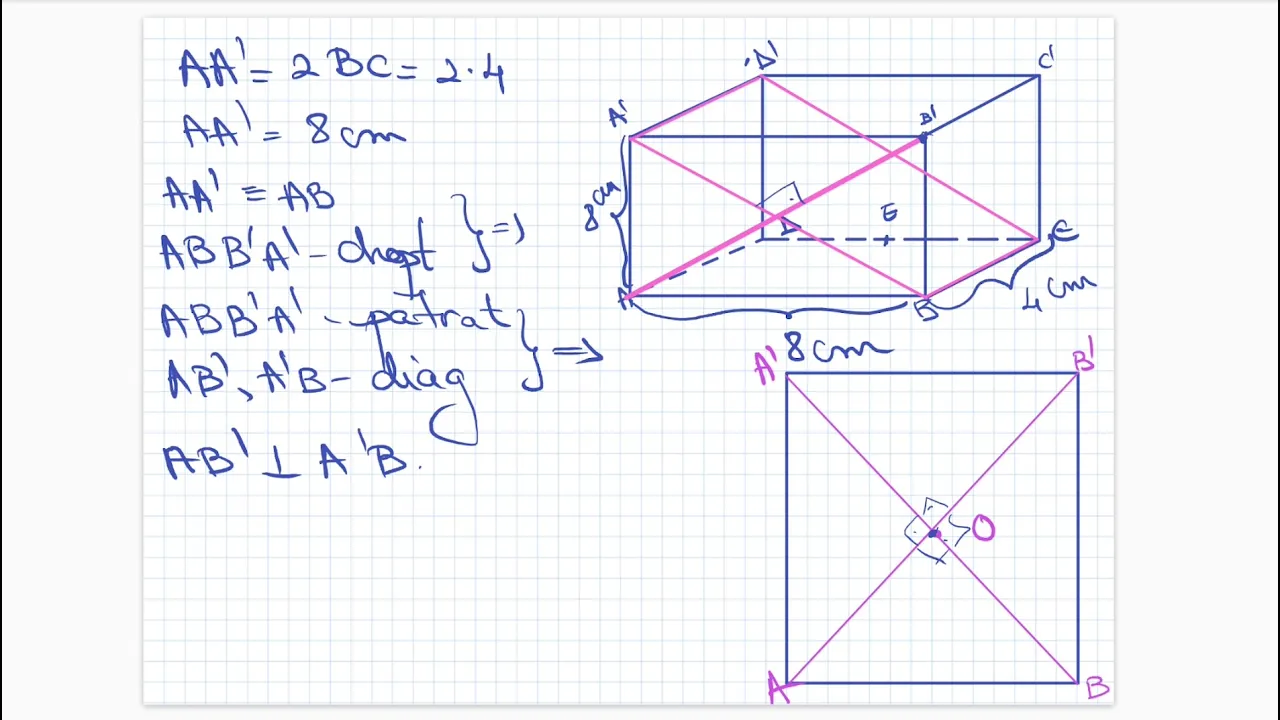 AA' = 2 BC = 2·4
AA' = 8 cm
AA' ≡ AB
ABB'A' - drept } =>
ABB'A' - pătrat
AB', A'B - diag } =>
AB' ⊥ A'B.
D'
C'
A'
B'
8 cm
E
C
A
B
4 cm
8 cm
A'
B'
O
A
B